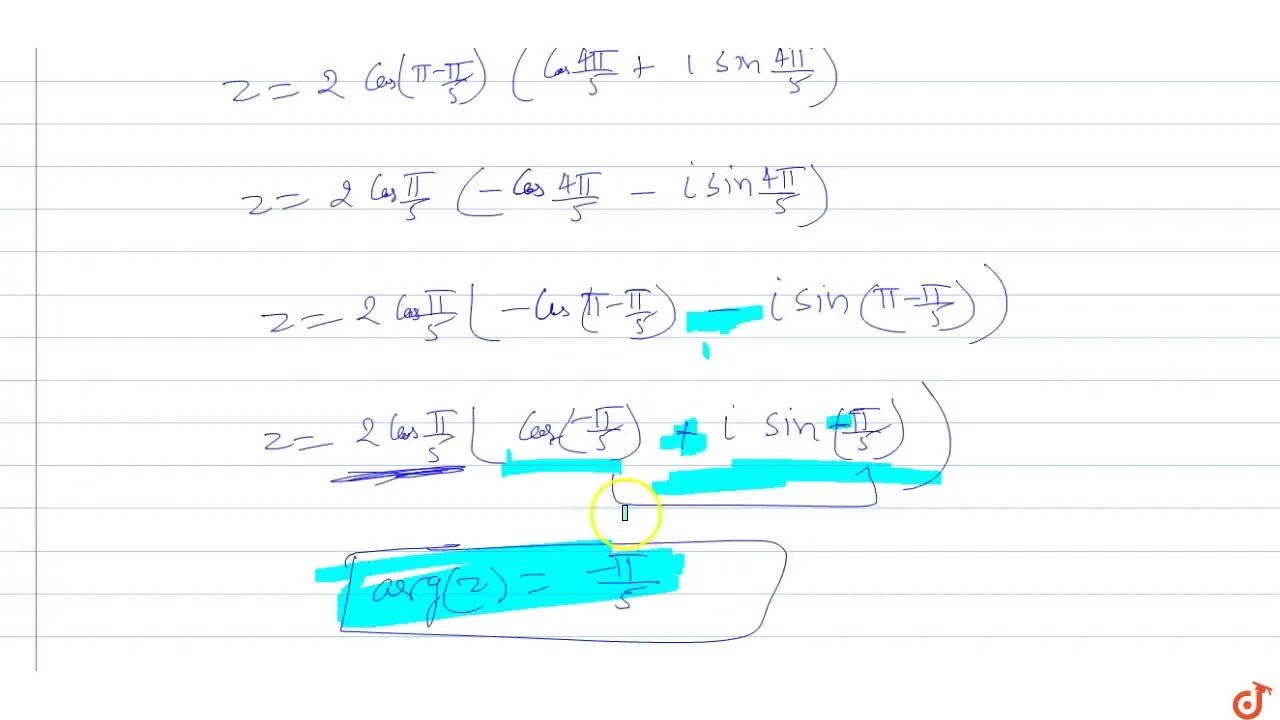 z = 2 Cos(π-π/5) (Cos 4π/5 + i sin 4π/5)
z = 2 Cos π/5 (-Cos 4π/5 - i sin 4π/5)
z = 2 Cos π/5 (-Cos(π-π/5) - i sin(π-π/5))
z = 2 Cos π/5 (Cos(-π/5) + i sin(-π/5))
arg(z) = -π/5